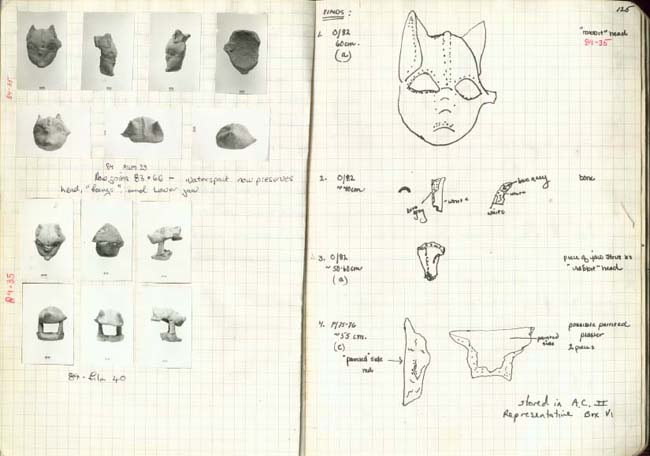 84-35
84 RUM 29
Now joins 83.66 - waterspout now preserves
head, "fangs" and lower jaw
84-35
84-Lila 40
125
FINDS:
1. O/82
60cm.
(a)
"rabbit" head
84-35
2. O/82
~40cm
white
white
bone
3. O/82
~50-60cm
(a)
piece of jaw
"rabbit" head
4.
~55 cm.
(c)
"painted" side
red
painted
side
possible painted
plaster
2 pieces
stored in A.C. II
Representative Box VI